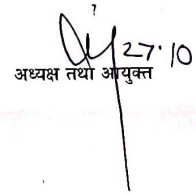 27.10
अध्यक्ष तथा आयुक्त